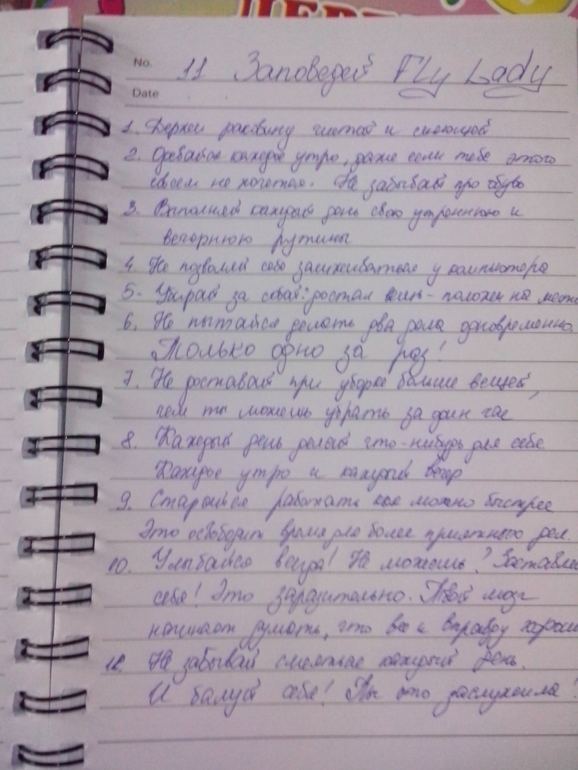 No. 11 Заповедей Fly Lady
Date
1. Держи раковину чистой и сияющей
2. Одевайся каждое утро, даже если тебе этого
совсем не хочется. Не забывай про обувь
3. Выполняй каждый день свою утреннюю и
вечернюю рутины
4. Не позволяй себе засиживаться у компьютера
5. Убирай за собой: достал - положи на место
6. Не пытайся делать два дела одновременно
Только одно за раз!
7. Не доставай при уборке больше вещей,
чем ты можешь убрать за один час
8. Каждый день делай что-нибудь для себя
Каждое утро и каждый вечер
9. Старайся работать как можно быстрее
Это освободит время для более приятного дел
10. Улыбайся всегда! Не можешь? Заставь
себя! Это заразительно. Твой мозг
начинает думать, что все и вправду хорош
11. Не забывай смеяться каждый день.
И балуй себя! Ты это заслужила!